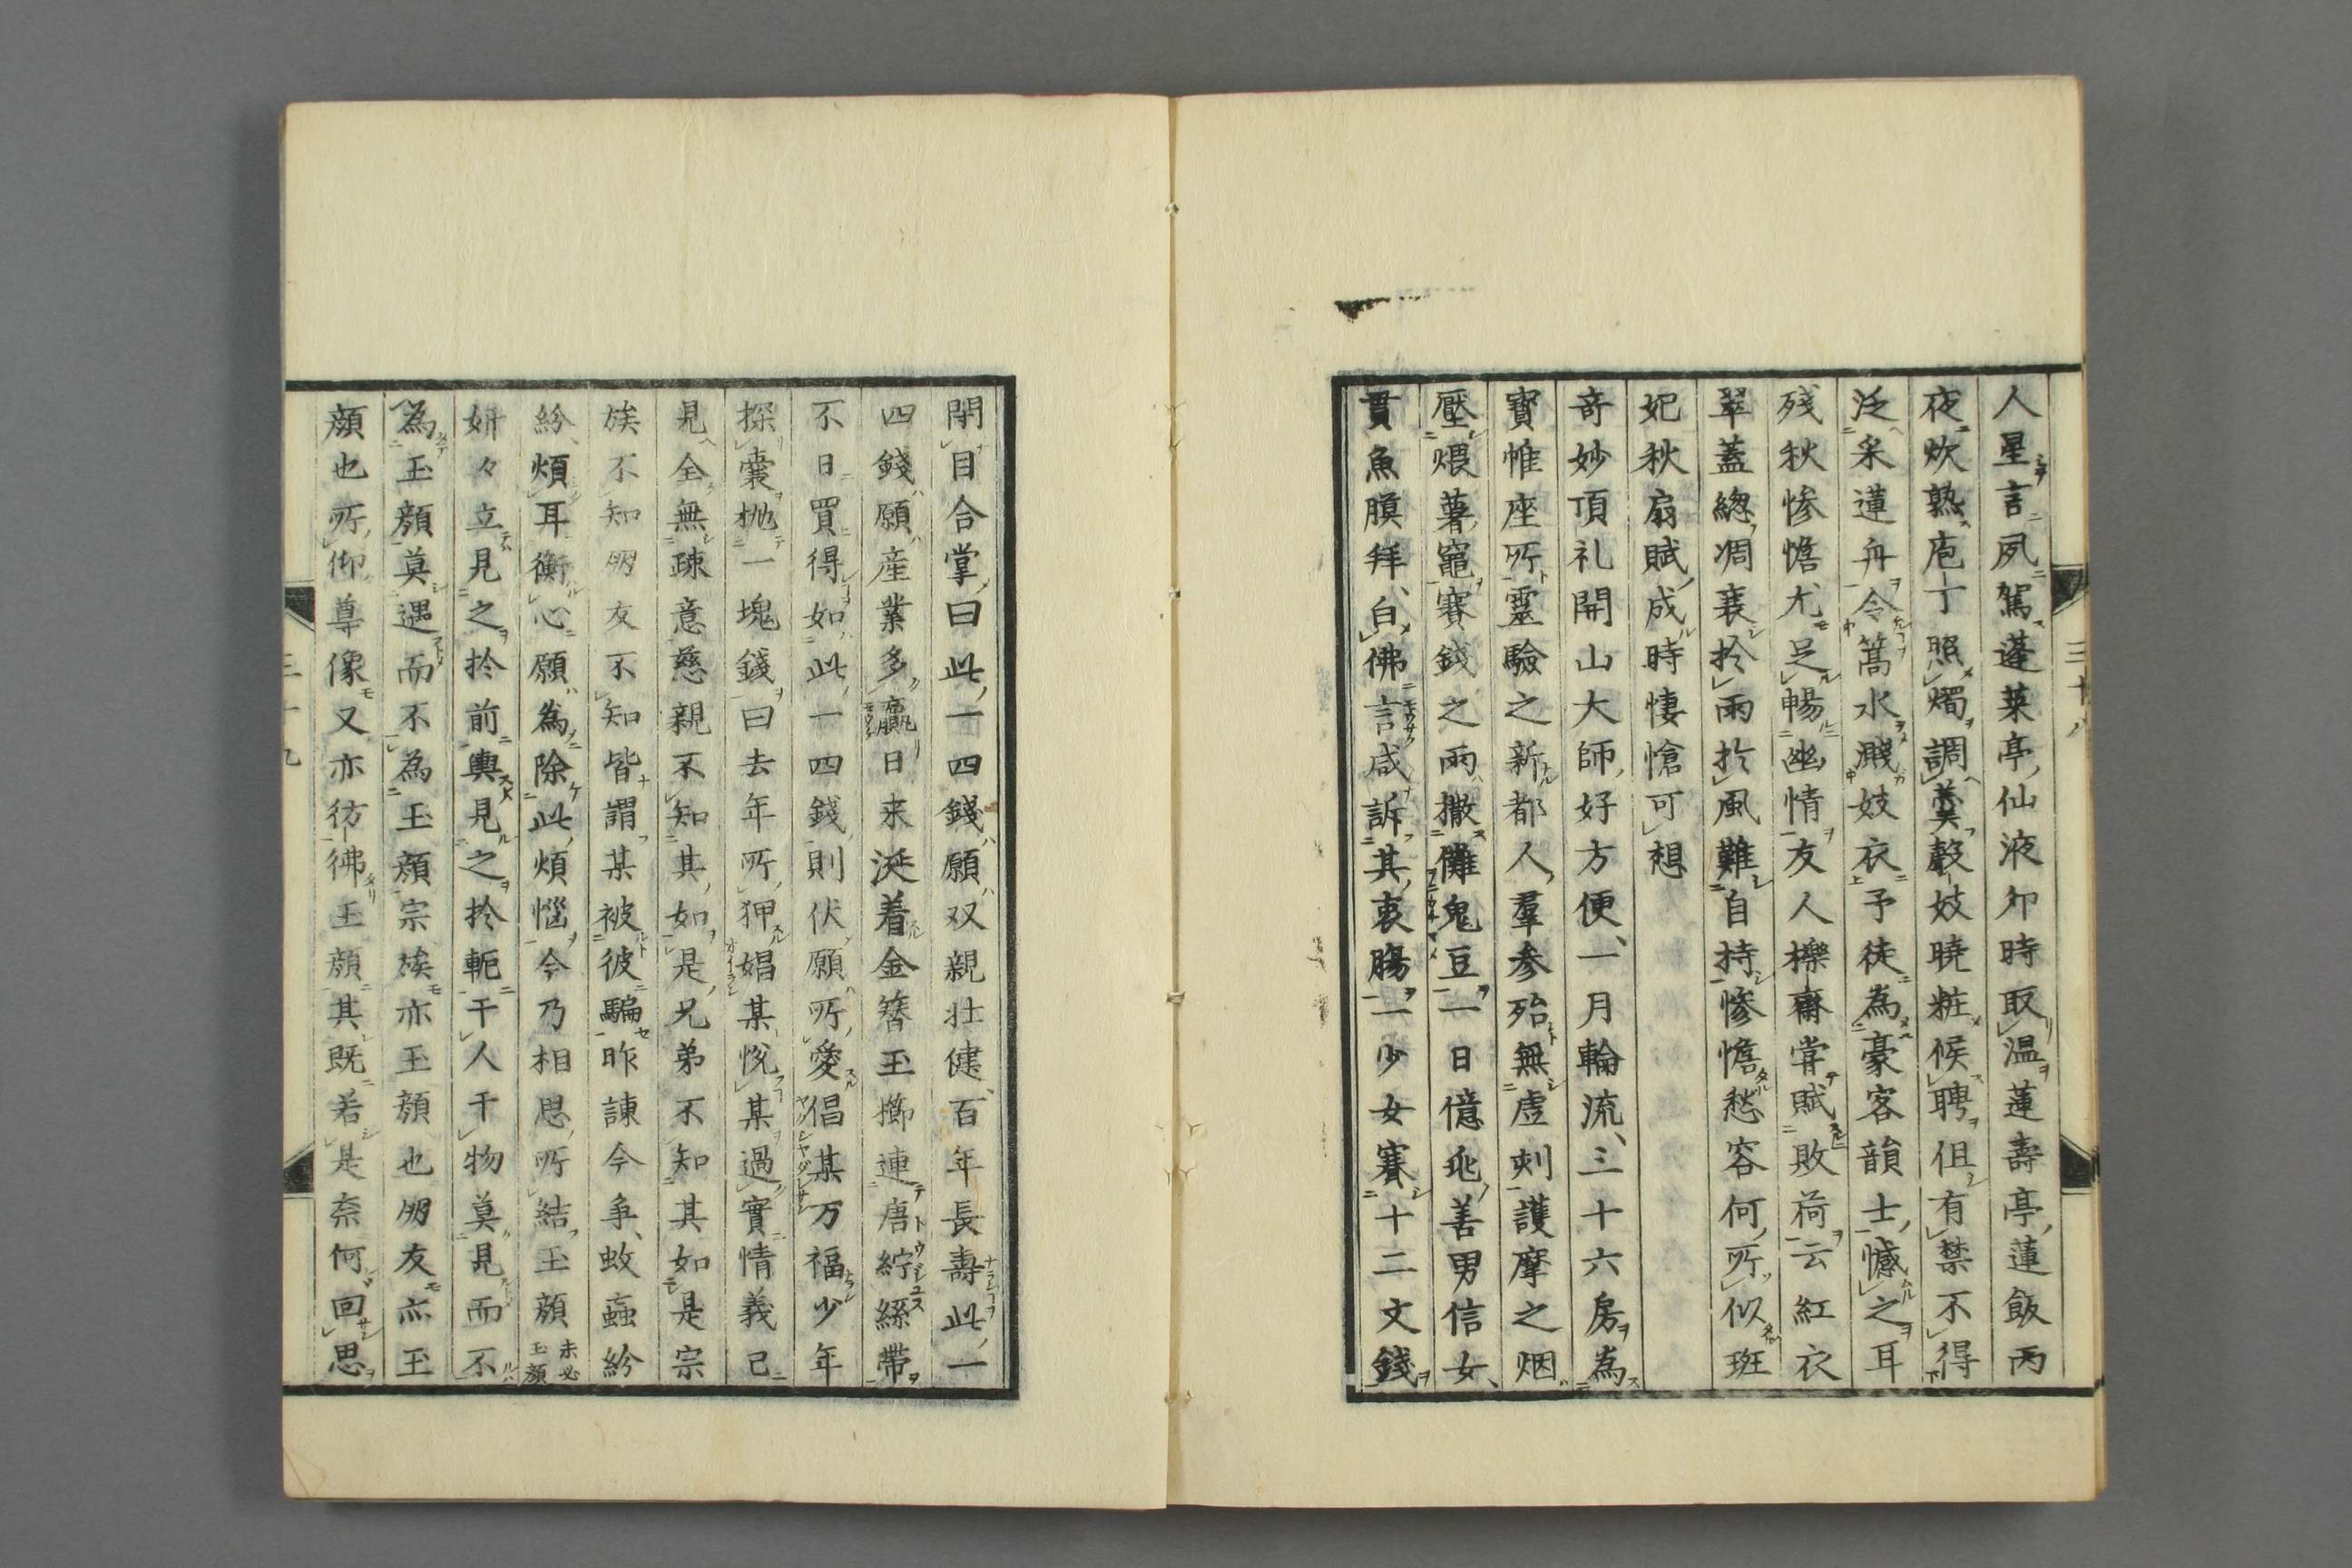 人星言夙駕蓬莱亭仙液夘時取温蓮壽亭蓮飯丙
夜炊熟庖丁照燭調羹毅妓暁粧候聘但有禁不得
泛采蓮舟令篙水濺妓衣予徒為豪客韻士憾之耳
残秋惨憺尤足暢幽情友人櫟齋甞賦敗荷云紅衣
翠蓋緫凋衰扵雨扵風難自持惨憺愁容何所似班
妃秋扇賦成時悽愴可想
竒妙頂礼開山大師好方便一月輪流三十六房為
寳帷座所靈驗之新都人羣参殆無虚刻護摩之烟
壓煨薯竈賽錢之雨撒儺鬼豆一日億兆善男信女
貫魚膜拜白佛言咸訴其衷腸一少女賽十二文錢
三十八
閉目合掌曰此一四錢願双親壮健百年長壽此一
四錢願産業多贏日来涎着金簪玉擲連唐紵絲帶
不日買得如此一四錢則伏願所愛倡某万福少年
探嚢抛一塊錢曰去年所狎娼某悦某過實情義己
見全無疎意慈親不知其如是兄弟不知其如是宗
族不知朋友不知皆謂某被彼騙昨諌今争蚊蟁紛
紛煩耳衡心願為除此煩惱今乃相思所結玉顔未必玉顔
妍々立見之扵前輿見之扵軛干人干物莫見而不
為玉顔莫遇而不為玉顔宗族亦玉顔也朋友亦玉
顔也所仰尊像又亦彷彿玉顔其既若是奈何回思
三十九